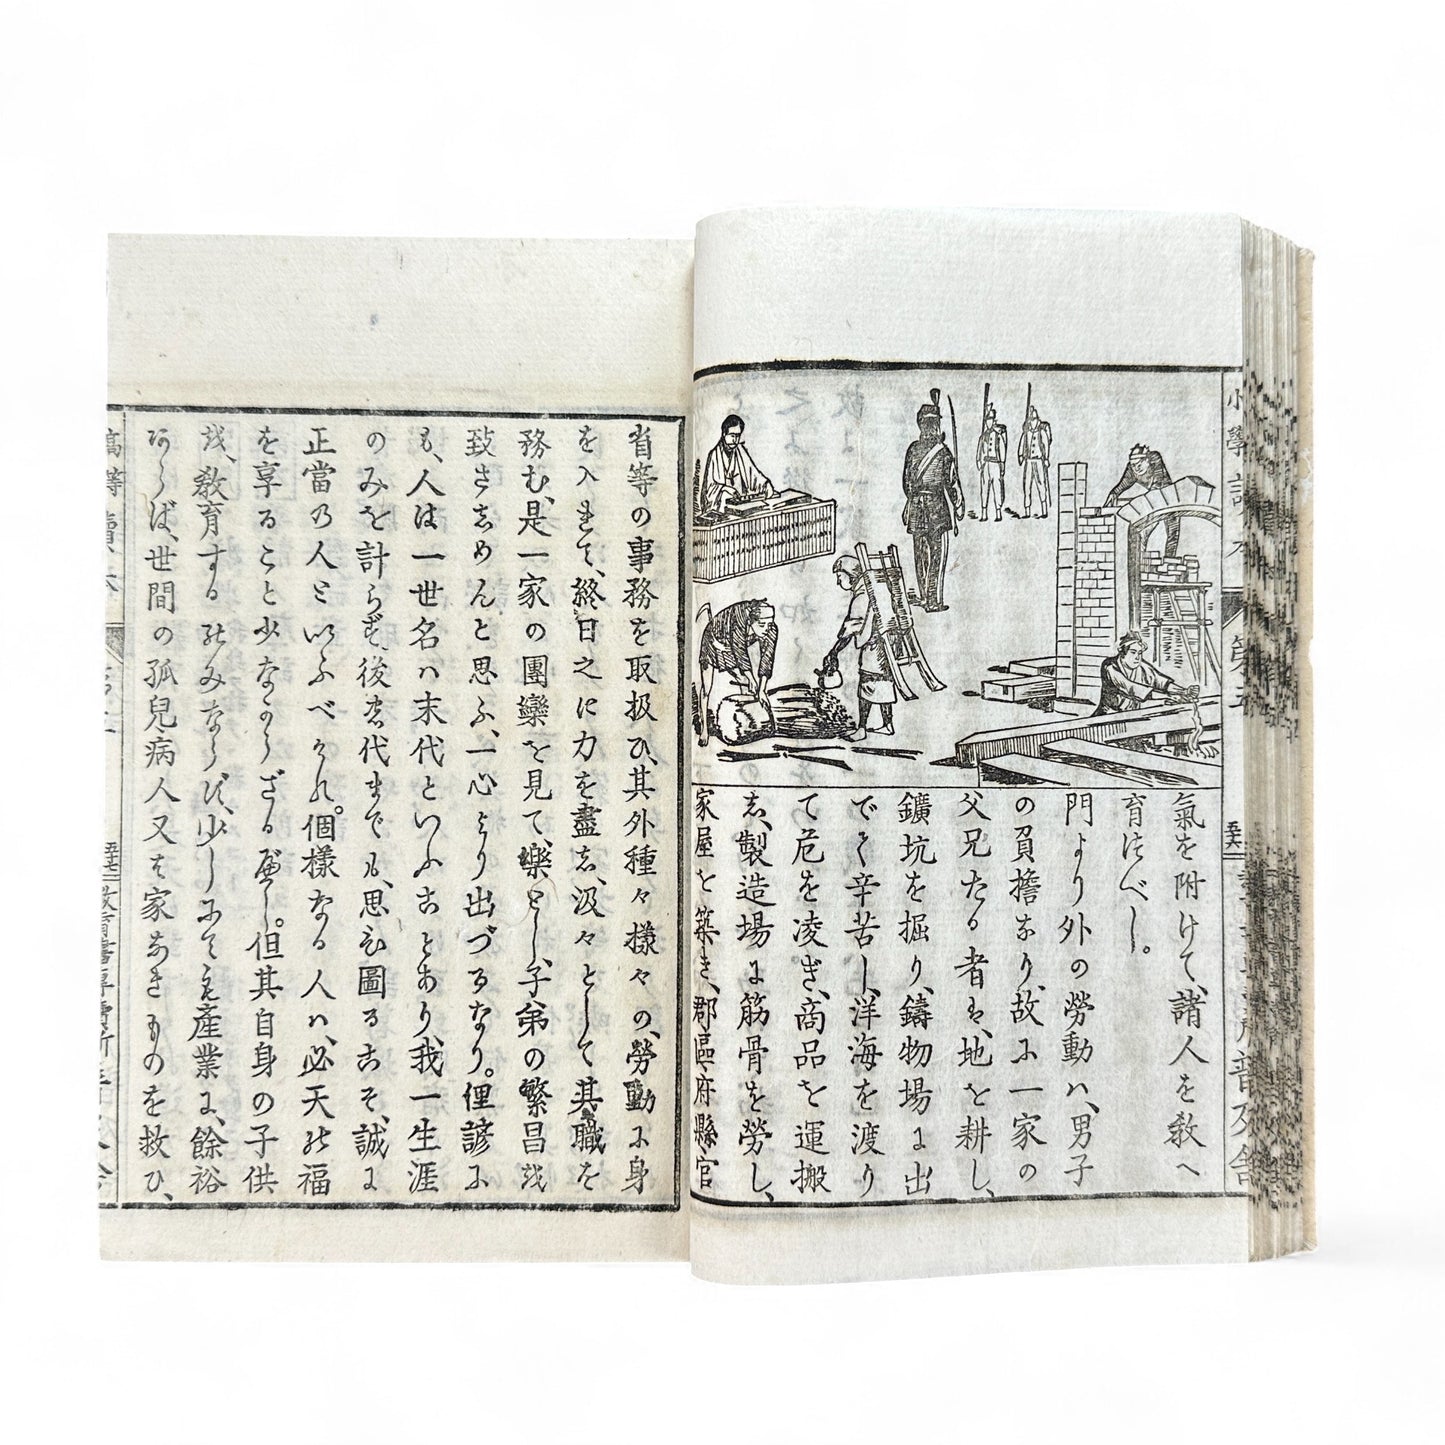 氣を附けて、諸人を敎へ
育すべし。
門より外の勞動は、男子
の負擔なり、故に一家の
父兄たる者は、地を耕し、
鑛坑を掘り、鑄物場に出
でゝ辛苦し、洋海を渡り
て危を凌ぎ、商品を運搬
し、製造場に筋骨を勞し、
家屋を築き、郡區府縣官
省等の事務を取扱ひ、其外種々樣々の、勞動に身
を入れて、終日之に力を盡し、汲々として其職を
務む、是一家の團欒を見て、樂とし、子弟の繁昌を
致さしめんと思ふ、一心より出づるなり。俚諺に
も、人は一世名は末代といふことあり、我一生涯
のみを計らず、後世代までも、思ひ圖るこそ、誠に
正當の人といふべけれ。個樣なる人は、必天の福
を享ること少なからざるべし。但其自身の子供
を、敎育するのみならず、少しにても產業に、餘裕
あらば、世間の孤兒病人又は家なきものを救ひ、
高等讀本